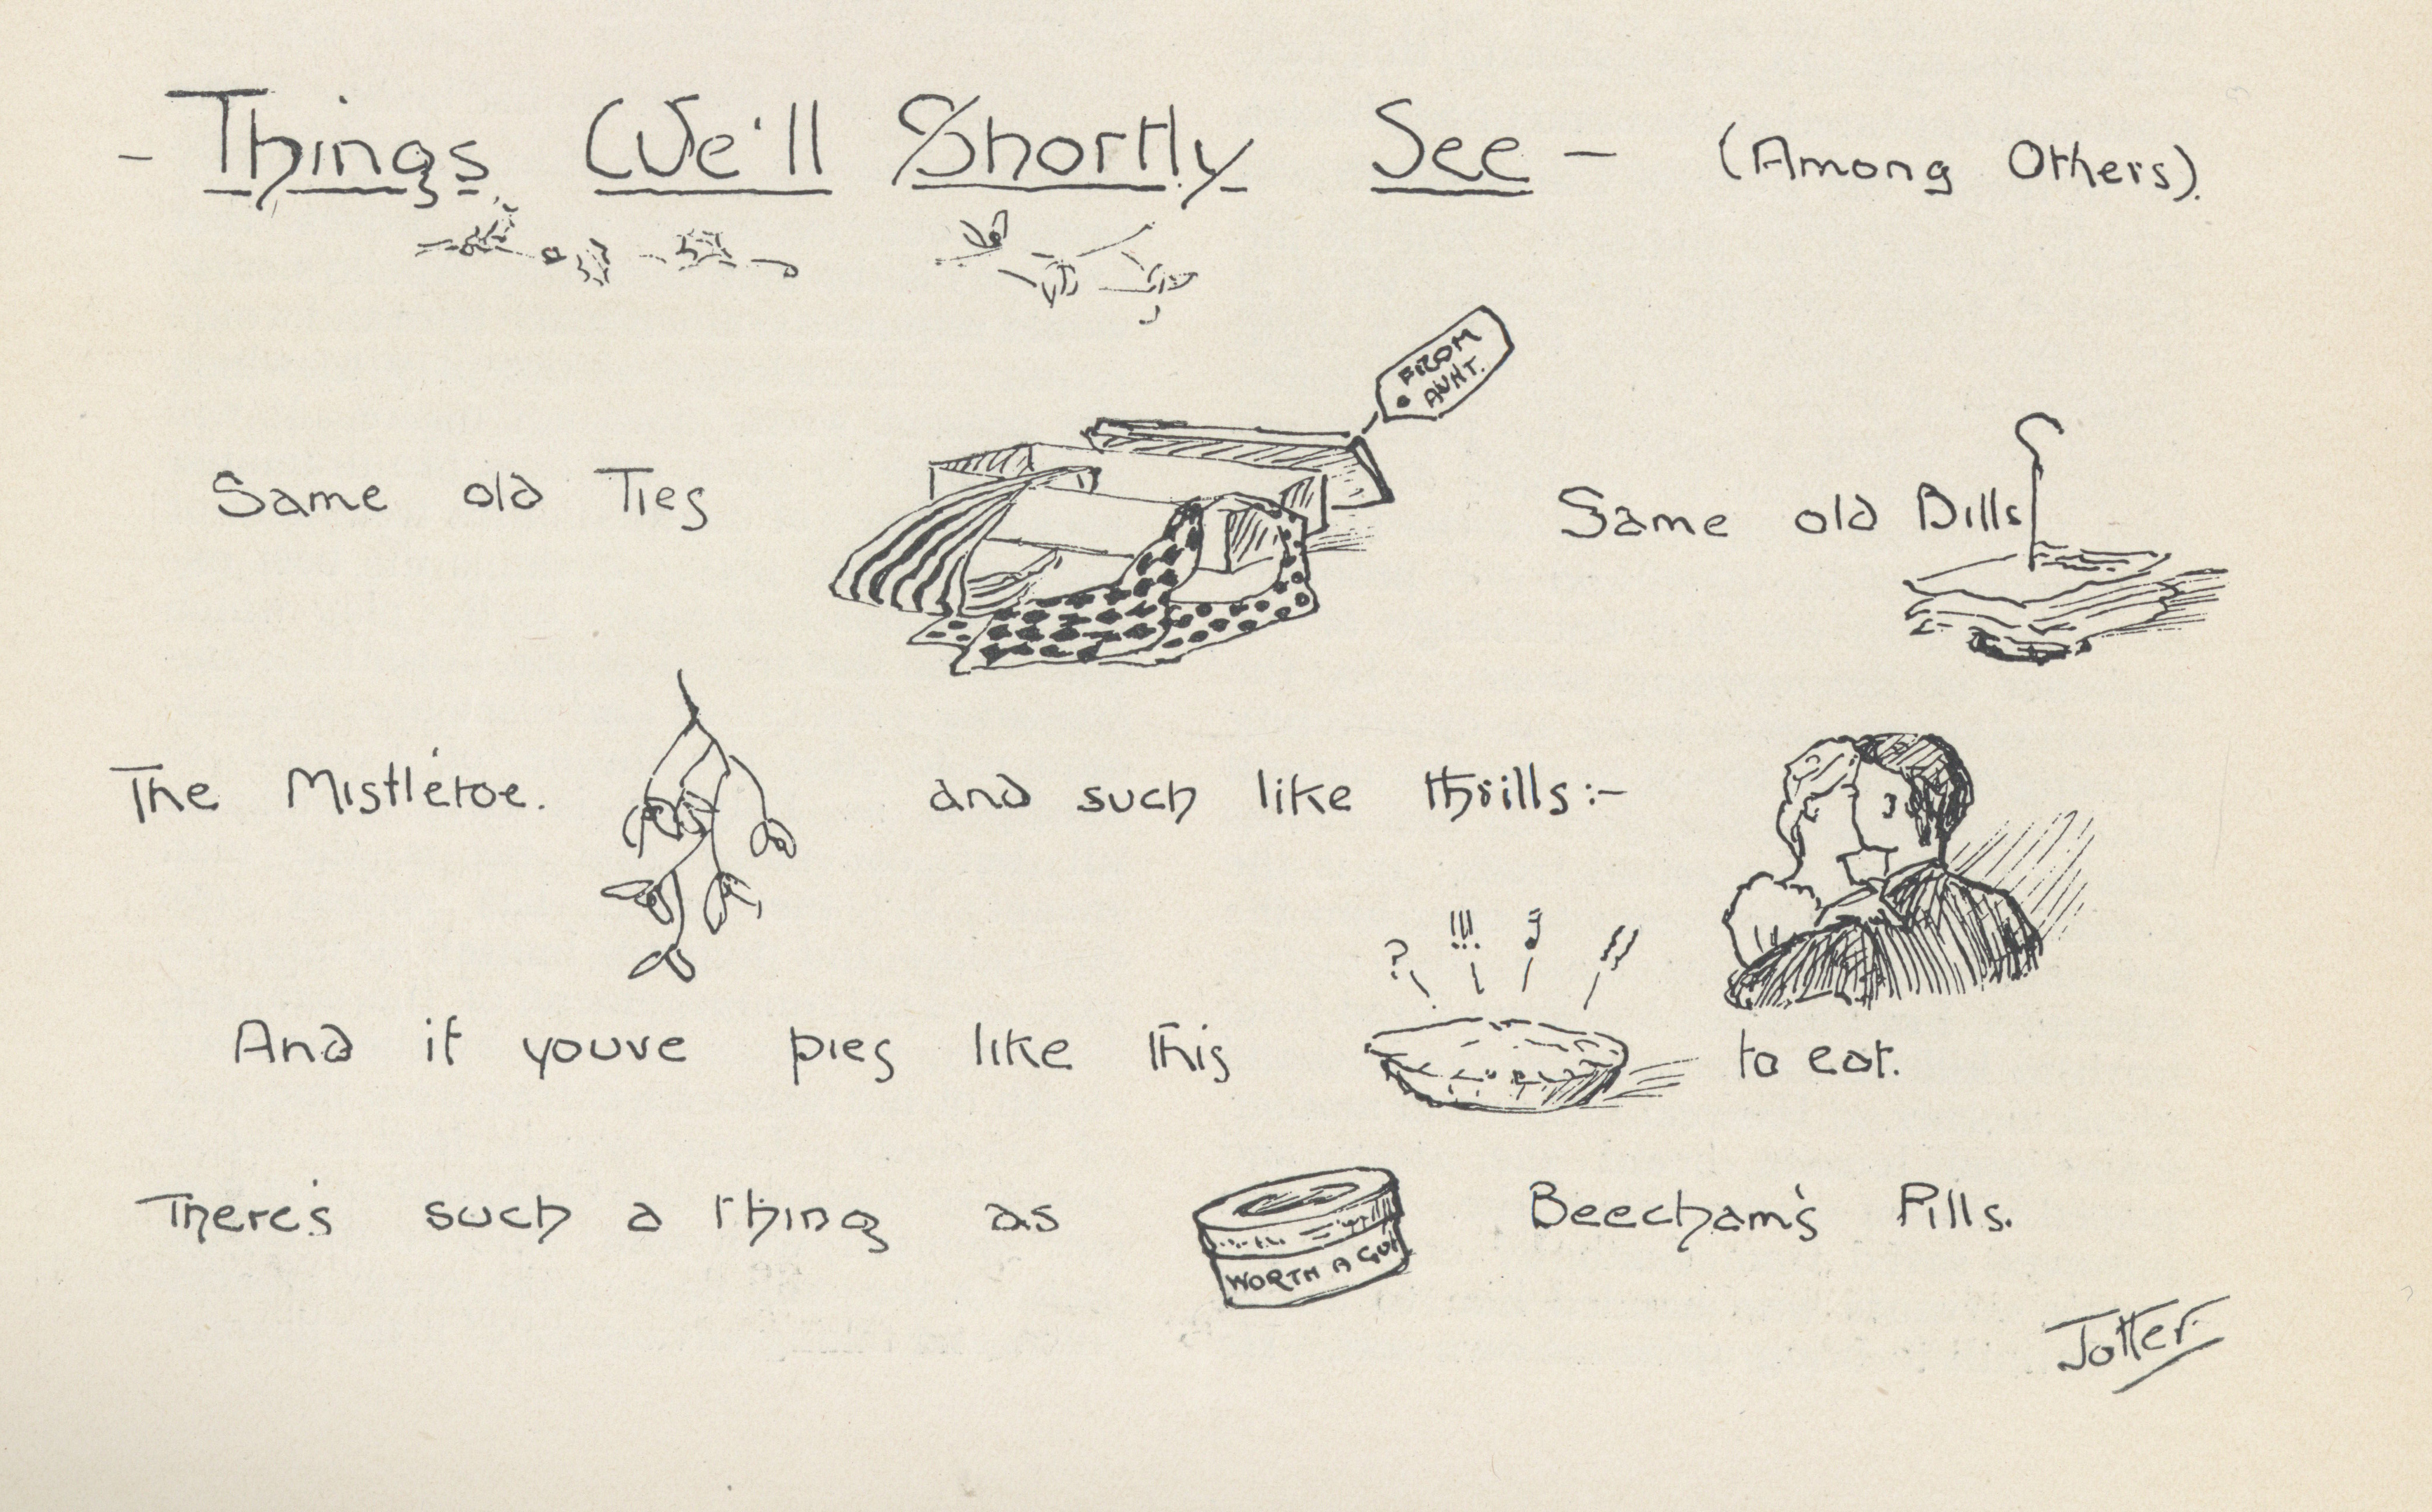 - Things We'll Shortly See - (Among Others).
FROM
AUNT.
Same old Ties Same old Bills
The Mistletoe. and such like thrills:-
? !!! ! !!
And if youve pies like this to eat.
There's such a thing as Beecham's Pills.
WORTH A GUI
Jotter